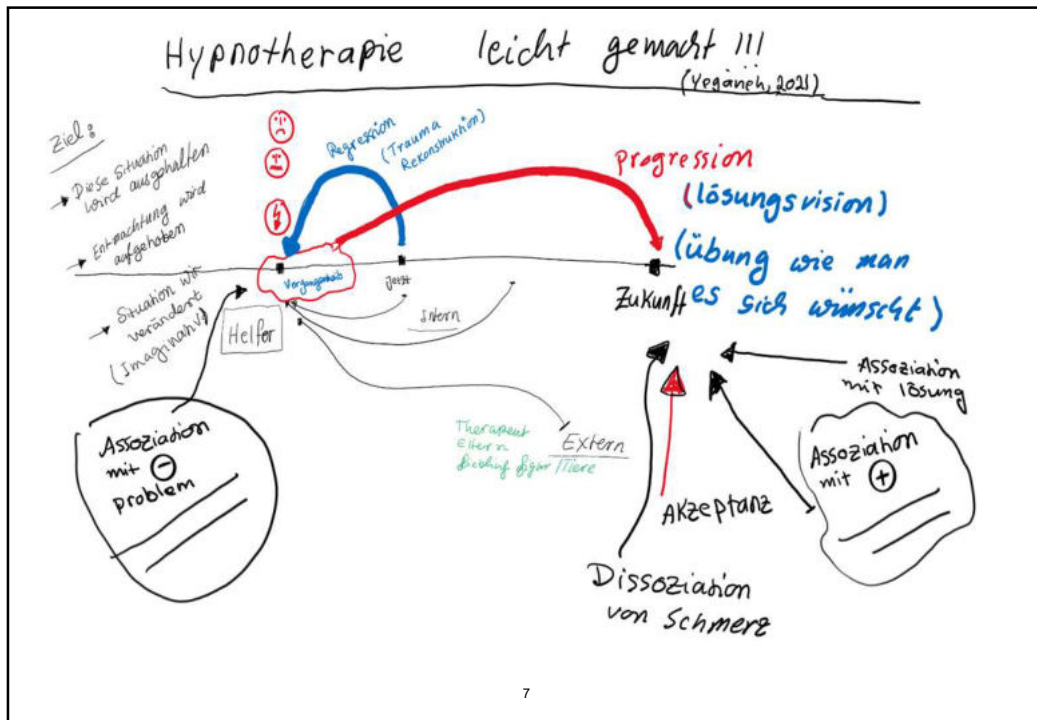 Hypnotherapie leicht gemacht !!!
(Yeganeh, 2021)
Ziel:
Diese Situation
wird ausgehalten
Entmachtung wird
aufgehoben
Situation wir
verändert
(Imaginativ)
Regression
(Trauma
Rekonstruktion)
Progression
(lösungsvision)
(Übung wie man
es sich wünscht)
Jetzt
Zukunft
Helfer
Intern
Therapeut
Eltern
figur/Tiere
Extern
Assoziation
mit -
problem
Assoziation
mit lösung
Assoziation
mit +
Akzeptanz
Dissoziation
von Schmerz
7